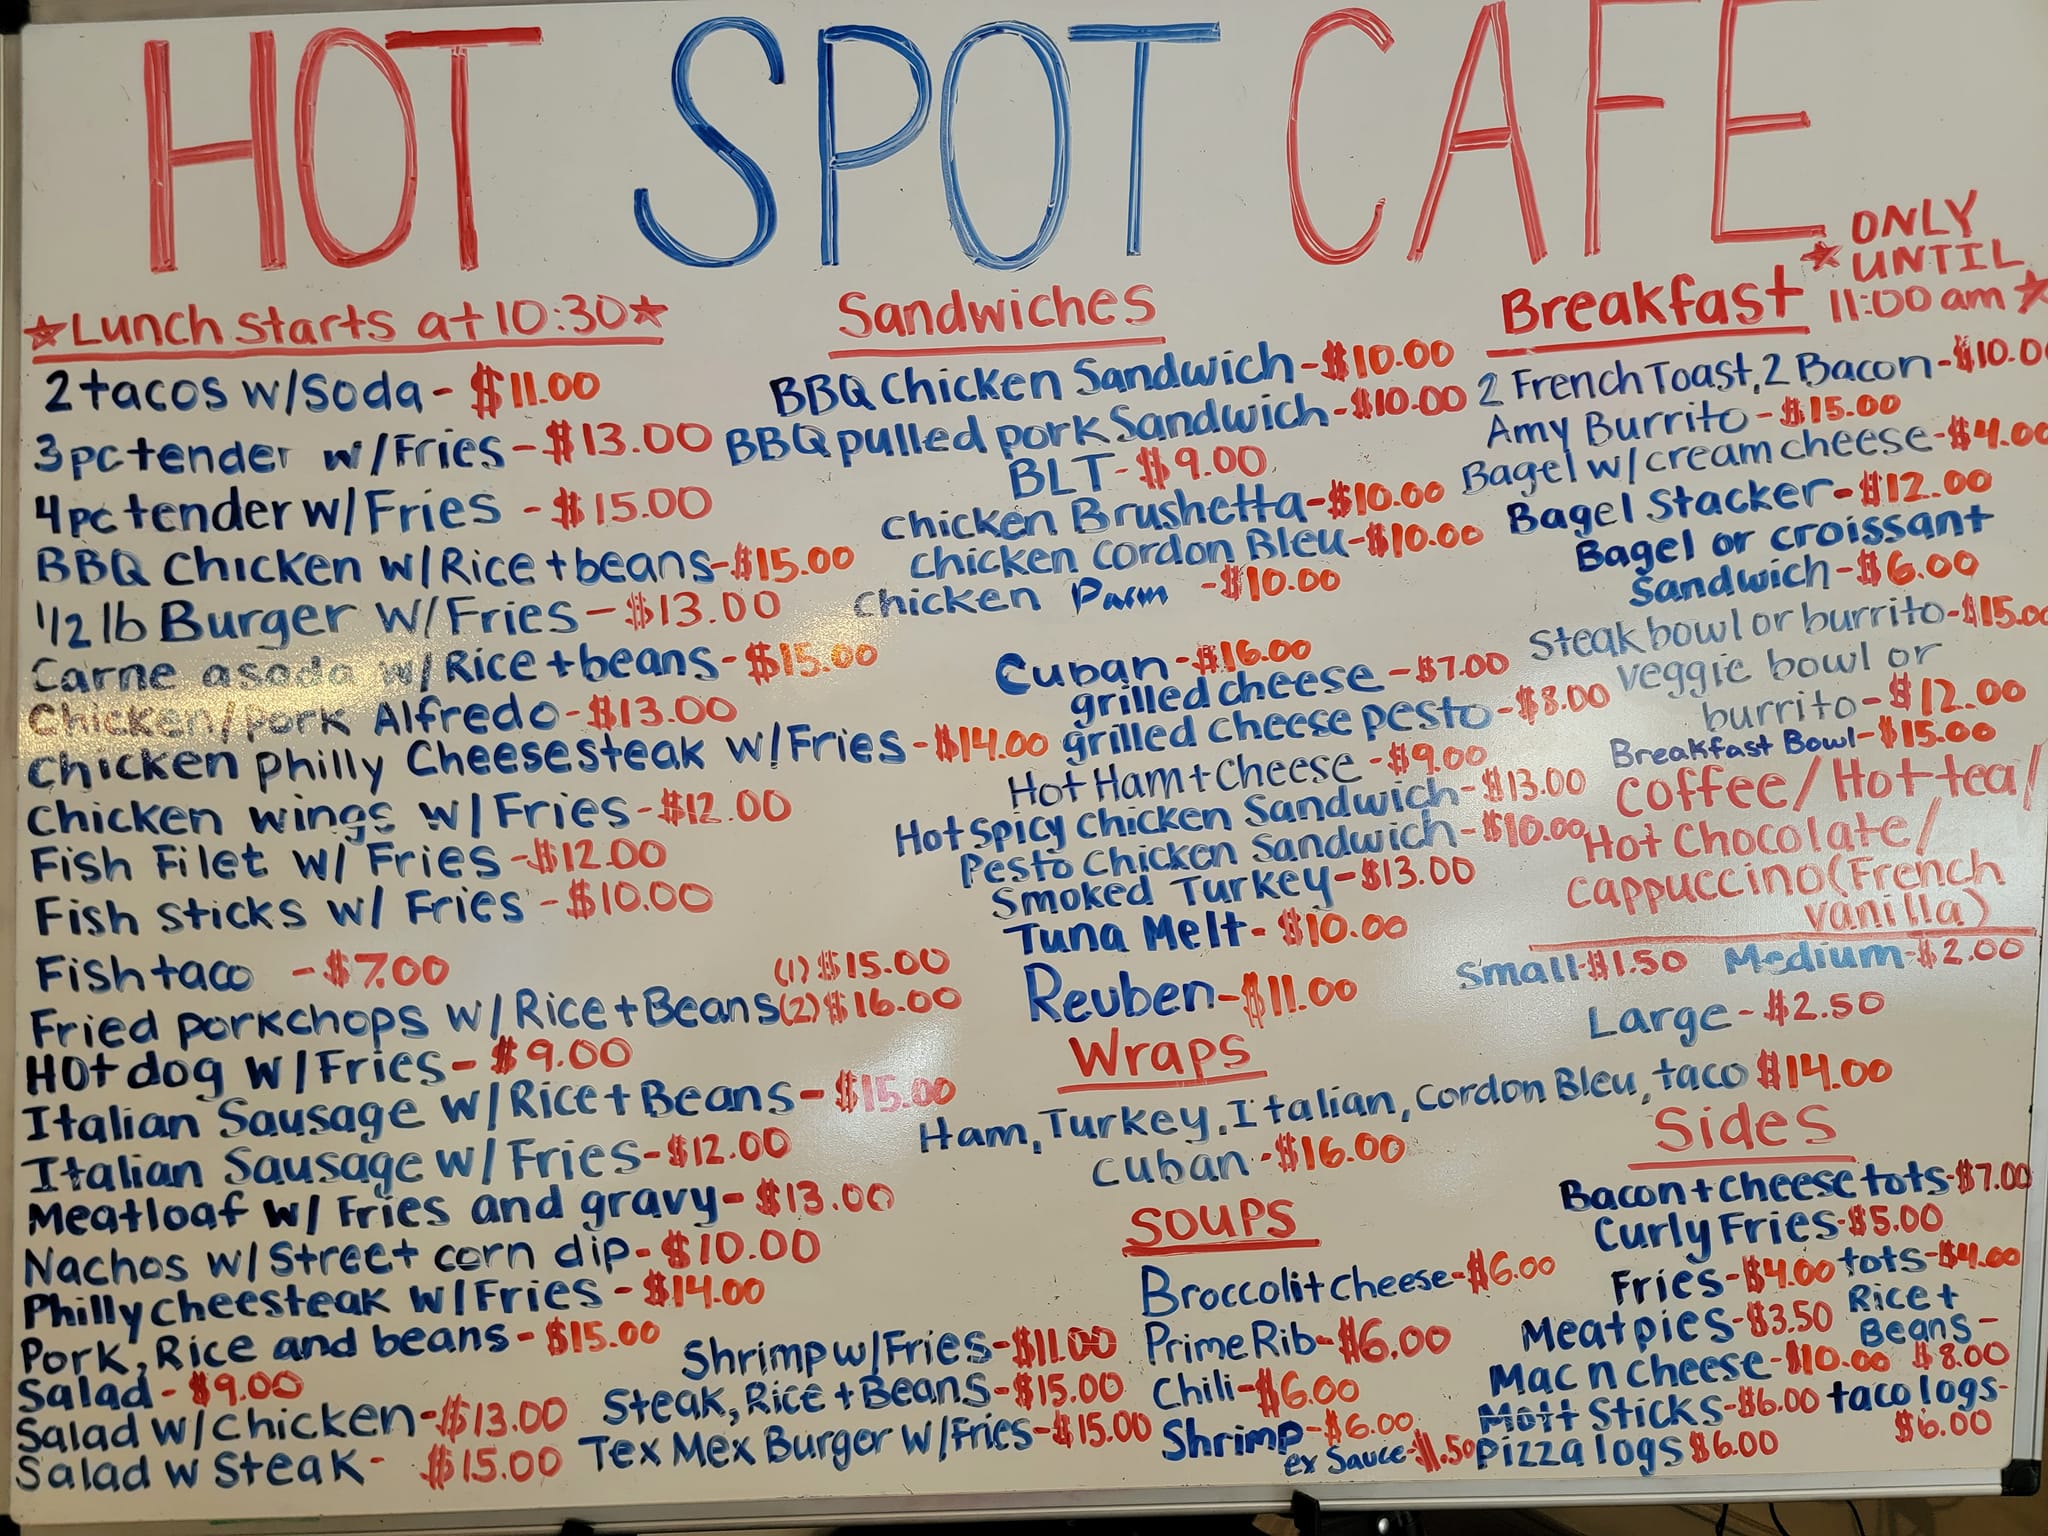 HOT SPOT CAFE
★Lunch starts at 10:30★
2 tacos w/soda - $11.00
3pc tender w/Fries - $13.00
4pc tender w/Fries - $15.00
BBQ Chicken w/Rice + beans - $15.00
1/2 lb Burger w/Fries - $13.00
Carne asada w/Rice + beans - $15.00
Chicken/pork Alfredo - $13.00
Chicken philly Cheesesteak w/Fries - $14.00
Chicken wings w/Fries - $12.00
Fish Filet w/ Fries - $12.00
Fish sticks w/ Fries - $10.00
Fish taco - $7.00
(1) $15.00
Fried porkchops w/Rice + Beans (2) $16.00
Hot dog w/Fries - $9.00
Italian Sausage w/Rice + Beans - $15.00
Italian Sausage w/Fries - $12.00
Meatloaf w/ Fries and gravy - $13.00
Nachos w/Street corn dip - $10.00
Philly cheesteak w/Fries - $14.00
Pork, Rice and beans - $15.00
Salad - $9.00
Salad w/chicken - $13.00
Salad w Steak - $15.00
Shrimp w/Fries - $11.00
Steak, Rice + Beans - $15.00
Tex Mex Burger w/Fries - $15.00
Sandwiches
BBQ Chicken Sandwich - $10.00
BBQ pulled pork Sandwich - $10.00
BLT - $9.00
Chicken Brushetta - $10.00
Chicken Cordon Bleu - $10.00
Chicken Parm - $10.00
Cuban - $16.00
grilled cheese - $7.00
grilled cheese pesto - $8.00
Hot Ham + Cheese - $9.00
Hot Spicy Chicken Sandwich - $13.00
Pesto Chicken Sandwich - $10.00
Smoked Turkey - $13.00
Tuna Melt - $10.00
Reuben - $11.00
Wraps
Ham, Turkey, Italian, Cordon Bleu, taco $14.00
Cuban - $16.00
SOUPS
Broccoli + cheese - $6.00
Prime Rib - $6.00
Chili - $6.00
Shrimp - $6.00
ex Sauce - $1.50
Breakfast
★ONLY
UNTIL
11:00 am★
2 French Toast, 2 Bacon - $10.00
Amy Burrito - $15.00
Bagel w/cream cheese - $4.00
Bagel Stacker - $12.00
Bagel or croissant
Sandwich - $6.00
Steak bowl or burrito - $15.00
veggie bowl or
burrito - $12.00
Breakfast Bowl - $15.00
Coffee/Hot tea/
Hot Chocolate/
Cappuccino (French
Vanilla)
Small - $1.50 Medium - $2.00
Large - $2.50
Sides
Bacon + cheese tots - $7.00
Curly Fries - $5.00
Fries - $4.00 tots - $4.00
Meat pies - $3.50
Rice +
Beans -
$8.00
Mac n cheese - $10.00
Mott Sticks - $6.00
taco logs -
$6.00
pizza logs $6.00